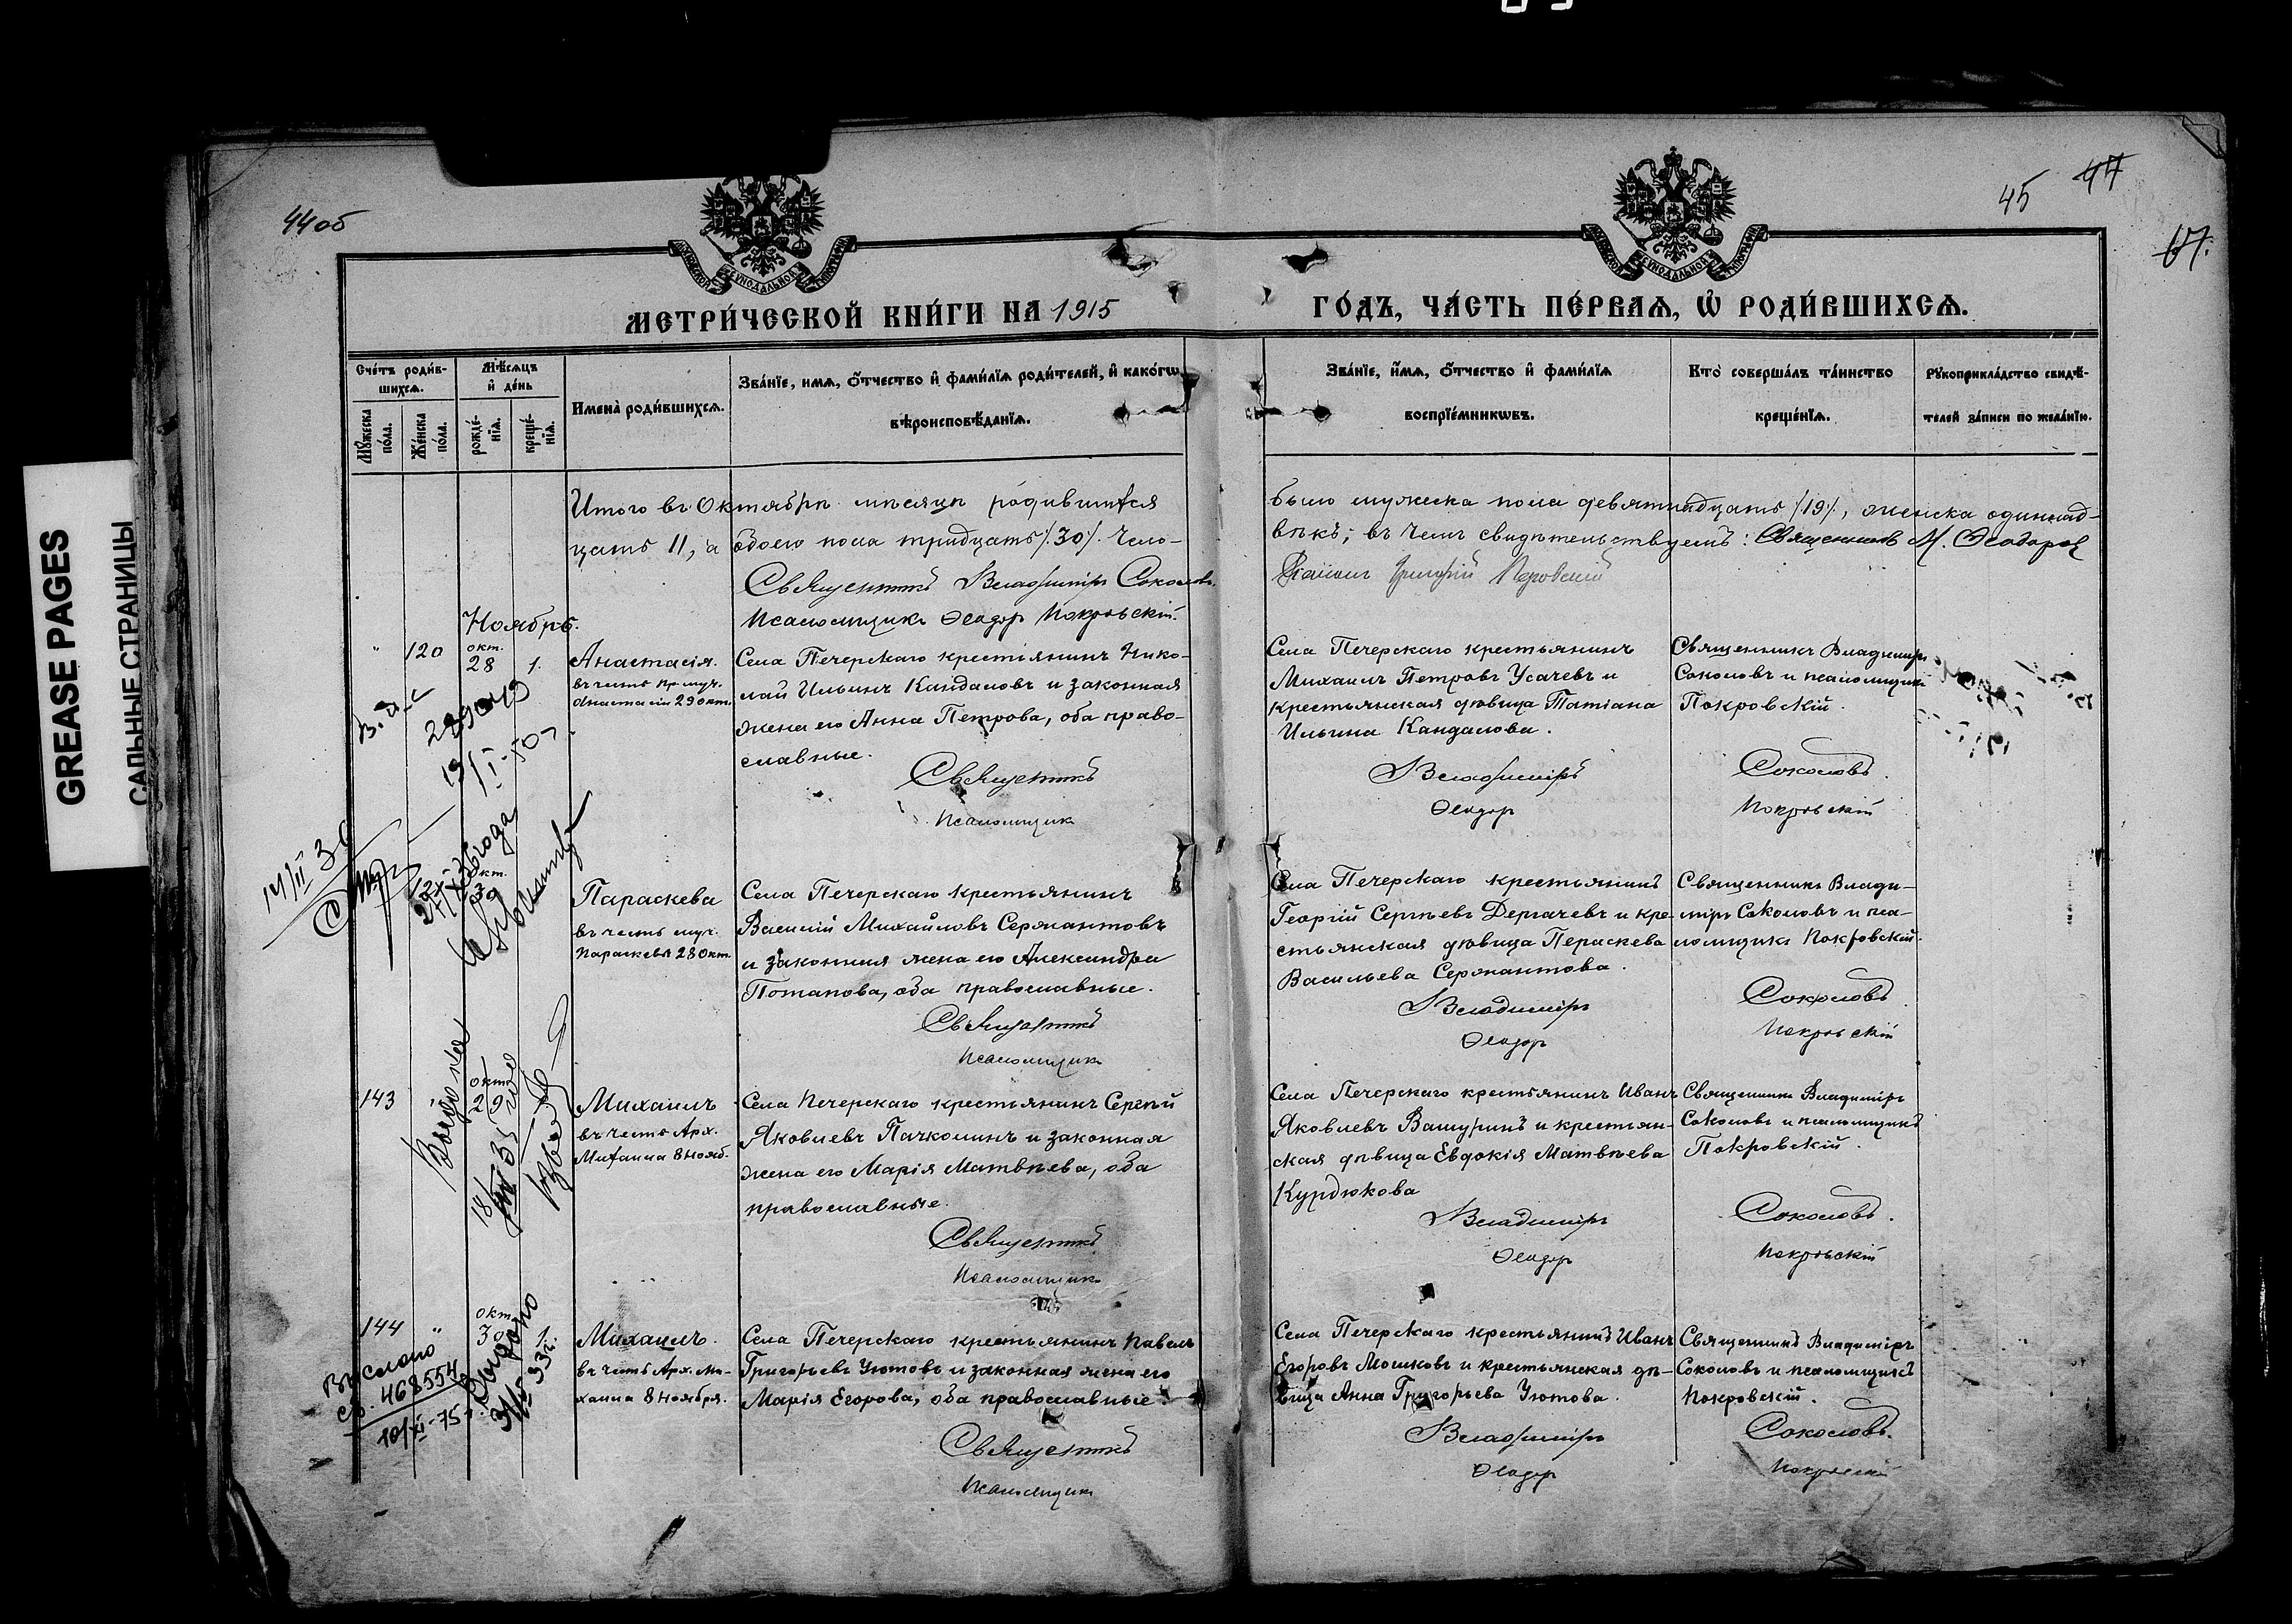 GREASE PAGES
САЛЬНЫЕ СТРАНИЦЫ
44об
45
47
67.
МЕТРИ́ЧЕСКОЙ КНИ́ГИ НА 1915
ГО́ДЪ, ЧА́СТЬ ПЕ́РВАѦ, Ѡ҆ РОДИ́ВШИХСѦ.
Сче́тъ роди́в-
шихсѧ.
Мѣ́сѧцъ
и҆ де́нь
Мꙋ́жеска
по́ла.
Же́нска
по́ла.
рожде́-
нїѧ.
креще́-
нїѧ.
Имена̀ роди́вшихсѧ.
Зва́нїе, имѧ, ѻ҆́тчество и҆ фами́лїѧ роди́телей, и҆ како́гѡ
вѣроисповѣ́данїѧ.
Зва́нїе, и҆́мѧ, ѻ҆́тчество и҆ фами́лїѧ
воспрїе́мникѡвъ.
Кто̀ соверша́лъ та́инство
креще́нїѧ.
Рꙋкоприкла́дство свидѣ́-
телей за́писи по жела́нїю.
Итого въ Октябрѣ мѣсяцѣ родившихся
цать 11, а обоего пола тридцать /30/. Чело-
Священникъ Владиміръ Соколовъ.
Псаломщикъ Ѳеодоръ Покровскій.
было мужеска пола девятнадцать /19/, женска одиннад-
вѣкъ; въ чемъ свидѣтельствуемъ: Священникъ М. Ѳеодоровъ
Ноябрь.
120
окт.
28
1.
Анастасія.
въ честь пр. муч.
Анастасіи 29 окт.
Села Печерскаго крестьянинъ Нико-
лай Ильинъ Кандаловъ и законная
жена его Анна Петрова, оба право-
славные.
Священникъ
Псаломщикъ
Села Печерскаго крестьянинъ
Михаилъ Петровъ Усачевъ и
крестьянская дѣвица Татіана
Ильина Кандалова.
Владиміръ
Ѳеодоръ
Священникъ Владиміръ
Соколовъ и псаломщикъ
Покровскій.
Соколовъ.
Покровскій
14/II 36
Параскева
въ честь муч.
Параскевы 28 окт.
Села Печерскаго крестьянинъ
Василій Михайловъ Сержантовъ
и законная жена его Александра
Потапова, оба православные.
Священникъ
Псаломщикъ
Села Печерскаго крестьянинъ
Георгій Сергѣевъ Дергачевъ и кре-
стьянская дѣвица Пераскева
Васильева Сержантова.
Владиміръ
Ѳеодоръ
Священникъ Влади-
міръ Соколовъ и пса-
ломщикъ Покровскій.
Соколовъ.
Покровскій
143
окт.
29
Михаилъ
въ честь Арх.
Михаила 8 нояб.
Села Печерскаго крестьянинъ Сергѣй
Яковлевъ Пачколинъ и законная
жена его Марія Матвѣева, оба
православные.
Священникъ
Псаломщикъ
Села Печерскаго крестьянинъ Иванъ
Яковлевъ Вашуринъ и крестьян-
ская дѣвица Евдокія Матвѣева
Курдюкова
Владиміръ
Ѳеодоръ
Священникъ Владиміръ
Соколовъ и псаломщикъ
Покровскій.
Соколовъ.
Покровскій
144
"
окт.
30
1.
Михаилъ.
въ честь Арх. Ми-
хаила 8 ноября.
Села Печерскаго крестьянинъ Павелъ
Григорьевъ Уютовъ и законная жена его
Марія Егорова, оба православные.
Священникъ
Псаломщикъ
Села Печерскаго крестьянинъ Иванъ
Егоровъ Мошковъ и крестьянская дѣ-
вица Анна Григорьева Уютова.
Владиміръ
Ѳеодоръ
Священникъ Владиміръ
Соколовъ и псаломщикъ
Покровскій.
Соколовъ.
Покровскій
Выслано
св. 468554
10/XI-75 г.